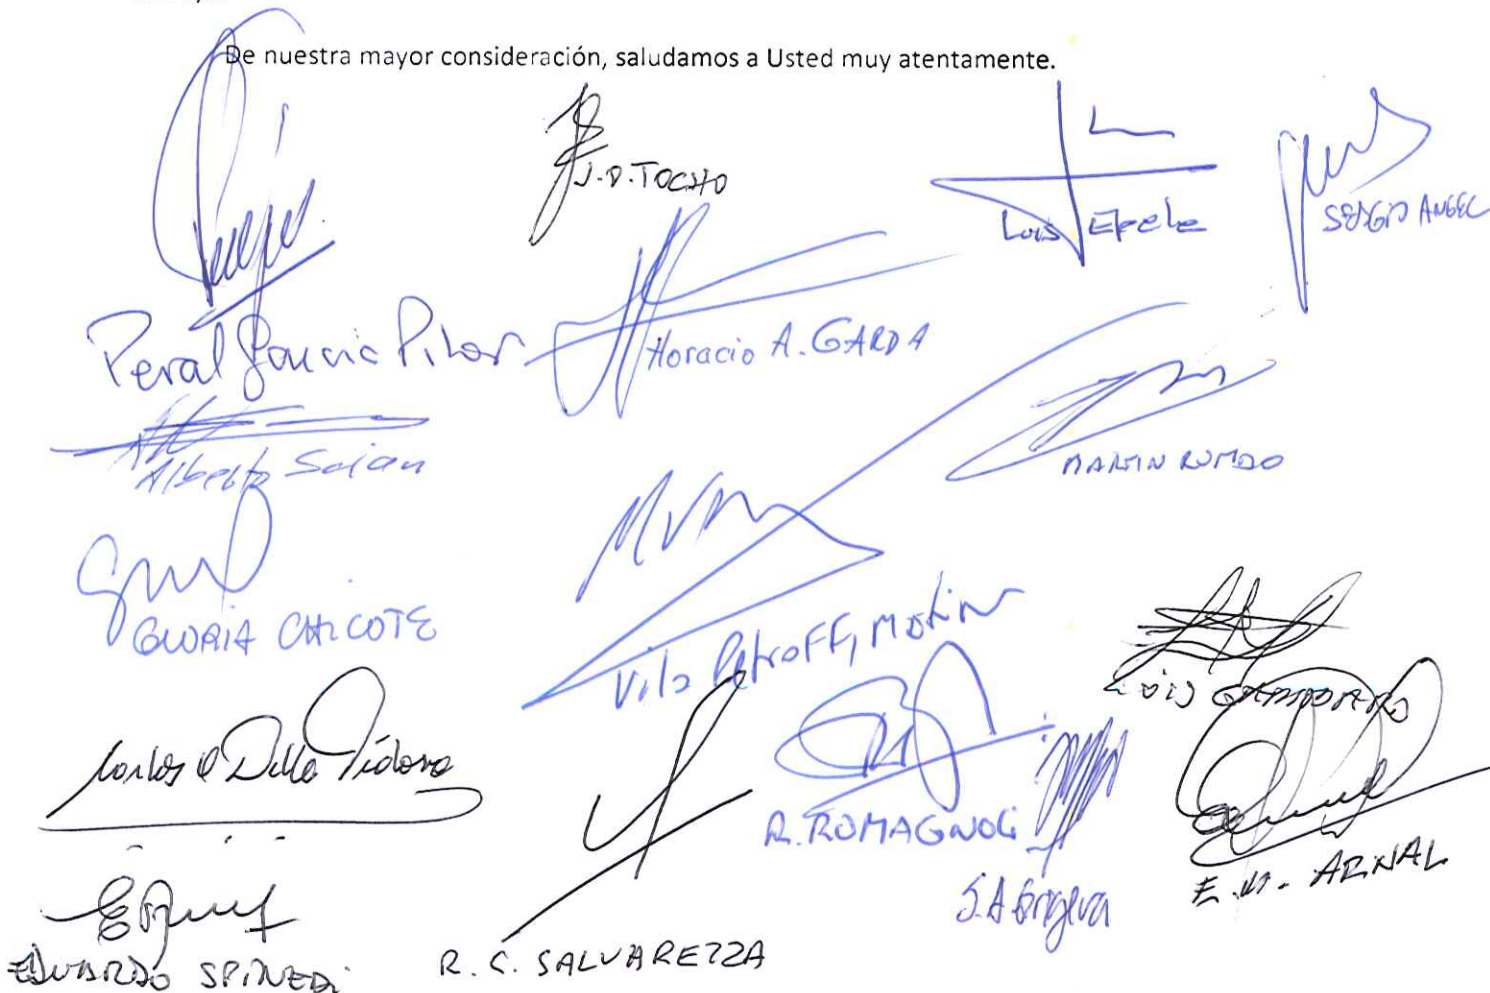 De nuestra mayor consideración, saludamos a Usted muy atentamente.
J.D. TOCHO
Luis Epele
SERGIO ANGEL
Peral García Pilar
Horacio A. GARDA
Alberto
MARTIN RUMBO
GLORIA CHICOTE
Vila Petroff, Martin
LUIS
Carlos Della Védova
R. ROMAGNOLI
E.M. ARNAL
EDUARDO SPINEDI
R. C. SALVAREZZA